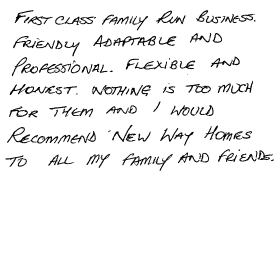 FIRST CLASS FAMILY RUN BUSINESS.
FRIENDLY ADAPTABLE AND
PROFESSIONAL. FLEXIBLE AND
HONEST. NOTHING IS TOO MUCH
FOR THEM AND I WOULD
RECOMMEND NEW WAY HOMES
TO ALL MY FAMILY AND FRIENDS.